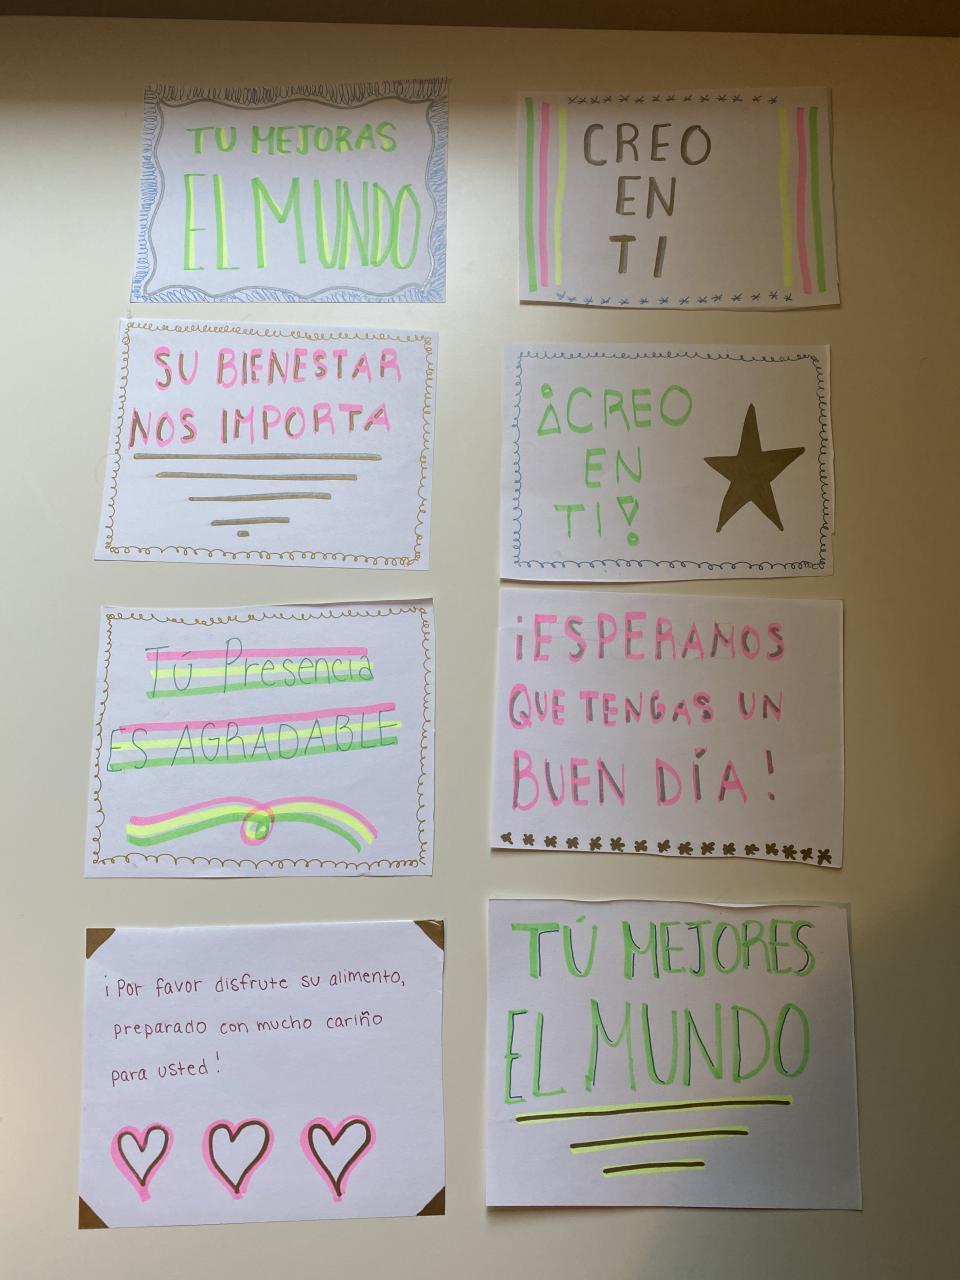 TU MEJORAS
EL MUNDO
CREO
EN
TI
SU BIENESTAR
NOS IMPORTA
¡CREO
EN
TI!
TÚ Presencia
ES AGRADABLE
¡ESPERAMOS
QUE TENGAS UN
BUEN DÍA!
¡Por favor disfrute su alimento,
preparado con mucho cariño
para usted!
TÚ MEJORES
EL MUNDO